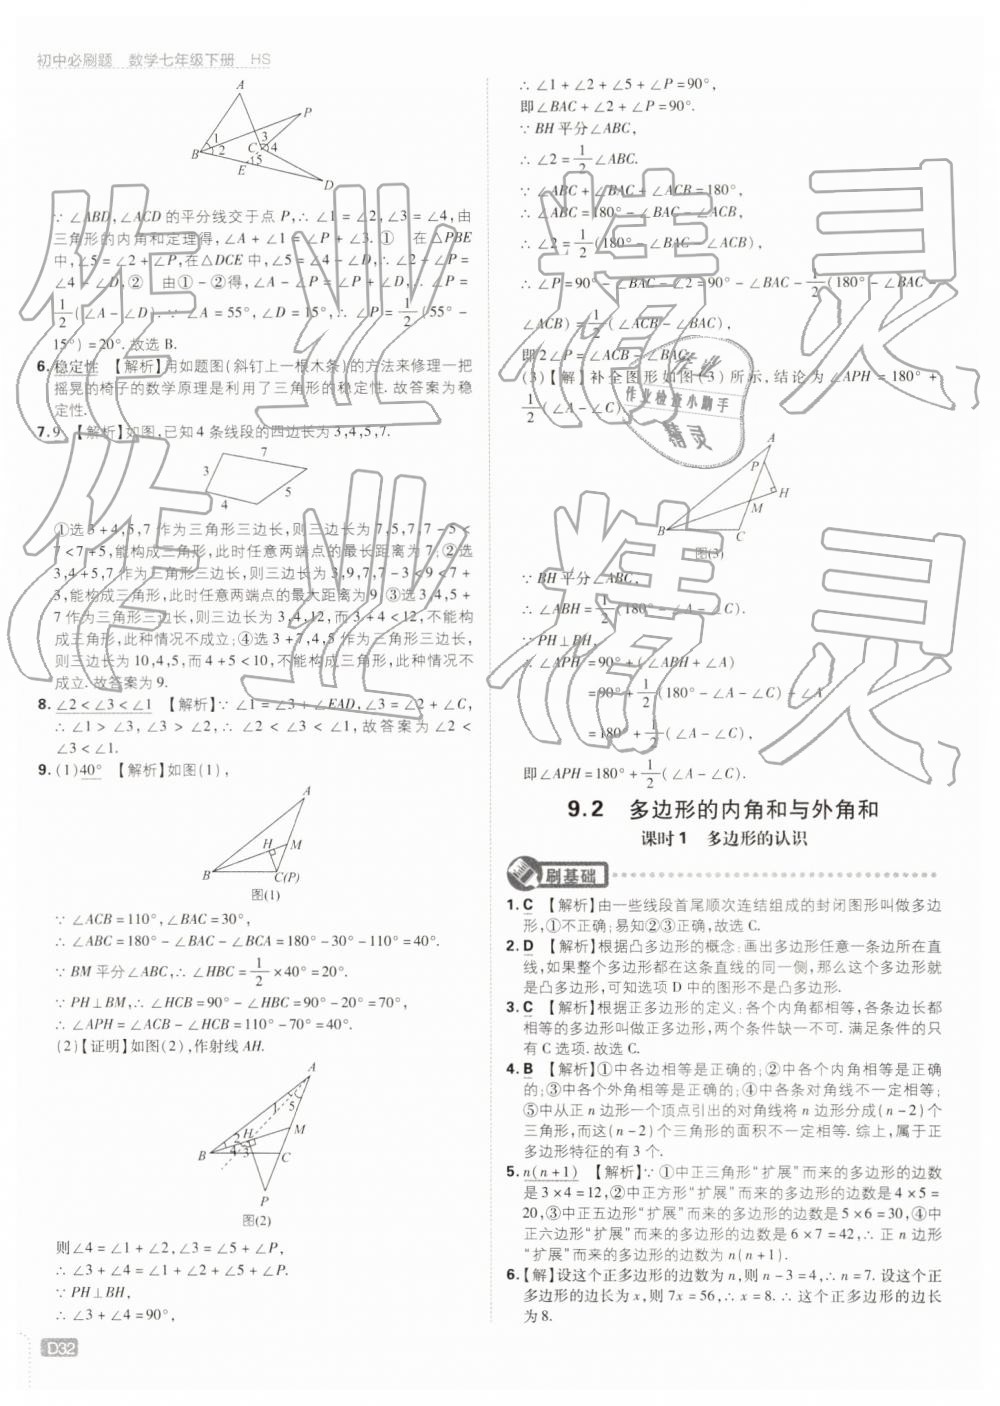 初中必刷题 数学七年级下册 HS
A
P
1
2
3
C
4
B
5
E
D
∵∠ABD,∠ACD的平分线交于点P,∴∠1=∠2,∠3=∠4,由
三角形的内角和定理得,∠A+∠1=∠P+∠3.① 在△PBE
中,∠5=∠2+∠P,在△DCE中,∠5=∠4-∠D,∴∠2+∠P=
∠4-∠D,② 由①-②得,∠A-∠P=∠P+∠D,∴∠P=
1/2(∠A-∠D).∵∠A=55°,∠D=15°,∴∠P=1/2(55°-
15°)=20°.故选B.
6.稳定性 【解析】用如题图(斜钉上一根木条)的方法来修理一把
摇晃的椅子的数学原理是利用了三角形的稳定性.故答案为稳
定性.
7.9 【解析】如图,已知4条线段的四边长为3,4,5,7.
7
3
5
4
①选3+4,5,7作为三角形三边长,则三边长为7,5,7,7-5<
7<7+5,能构成三角形,此时任意两端点的最长距离为7;②选
3,4+5,7作为三角形三边长,则三边长为3,9,7,7-3<9<7+
3,能构成三角形,此时任意两端点的最大距离为9;③选3,4,5+
7作为三角形三边长,则三边长为3,4,12,而3+4<12,不能构
成三角形,此种情况不成立;④选3+7,4,5作为三角形三边长,
则三边长为10,4,5,而4+5<10,不能构成三角形,此种情况不
成立.故答案为9.
8.∠2<∠3<∠1 【解析】∵∠1=∠3+∠EAD,∠3=∠2+∠C,
∴∠1>∠3,∠3>∠2,∴∠2<∠3<∠1,故答案为∠2<
∠3<∠1.
9.(1)40° 【解析】如图(1),
A
H
M
B
C(P)
图(1)
∵∠ACB=110°,∠BAC=30°,
∴∠ABC=180°-∠BAC-∠BCA=180°-30°-110°=40°.
∵BM平分∠ABC,∴∠HBC=1/2×40°=20°.
∵PH⊥BM,∴∠HCB=90°-∠HBC=90°-20°=70°,
∴∠APH=∠ACB-∠HCB=110°-70°=40°.
(2)【证明】如图(2),作射线AH.
A
5
1
H
2
M
B
4
3
C
P
图(2)
则∠4=∠1+∠2,∠3=∠5+∠P,
∴∠3+∠4=∠1+∠2+∠5+∠P.
∵PH⊥BH,
∴∠3+∠4=90°,
D32
∴∠1+∠2+∠5+∠P=90°,
即∠BAC+∠2+∠P=90°.
∵BH平分∠ABC,
∴∠2=1/2∠ABC.
∵∠ABC+∠BAC+∠ACB=180°,
∴∠ABC=180°-∠BAC-∠ACB,
∴∠2=1/2(180°-∠BAC-∠ACB),
∴∠P=90°-∠BAC-∠2=90°-∠BAC-1/2(180°-∠BAC-
∠ACB)=1/2(∠ACB-∠BAC),
即2∠P=∠ACB-∠BAC.
(3)【解】补全图形如图(3)所示,结论为∠APH=180°+
1/2(∠A-∠C).
A
P
H
M
B
C
图(3)
∵BH平分∠ABC,
∴∠ABH=1/2(180°-∠A-∠C).
∵PH⊥BH,
∴∠APH=90°+(∠ABH+∠A)
=90°+1/2(180°-∠A-∠C)+∠A
=180°+1/2(∠A-∠C),
即∠APH=180°+1/2(∠A-∠C).
9.2 多边形的内角和与外角和
课时1 多边形的认识
刷基础
1.C 【解析】由一些线段首尾顺次连结组成的封闭图形叫做多边
形,①不正确;易知②③正确,故选C.
2.D 【解析】根据凸多边形的概念:画出多边形任意一条边所在直
线,如果整个多边形都在这条直线的同一侧,那么这个多边形就
是凸多边形,可知选项D中的图形不是凸多边形.
3.C 【解析】根据正多边形的定义:各个内角都相等,各条边长都
相等的多边形叫做正多边形,两个条件缺一不可.满足条件的只
有C选项.故选C.
4.B 【解析】①中各边相等是正确的;②中各个内角相等是正确
的;③中各个外角相等是正确的;④中各条对角线不一定相等;
⑤中从正n边形一个顶点引出的对角线将n边形分成(n-2)个
三角形,而这(n-2)个三角形的面积不一定相等.综上,属于正
多边形特征的有3个.
5.n(n+1) 【解析】∵①中正三角形“扩展”而来的多边形的边数
是3×4=12,②中正方形“扩展”而来的多边形的边数是4×5=
20,③中正五边形“扩展”而来的多边形的边数是5×6=30,④中
正六边形“扩展”而来的多边形的边数是6×7=42,∴正n边形
“扩展”而来的多边形的边数为n(n+1).
6.【解】设这个正多边形的边数为n,则n-3=4,∴n=7.设这个正
多边形的边长为x,则7x=56,∴x=8.∴这个正多边形的边长
为8.
作业精灵
作业精灵
作业
作业检查小助手
精灵